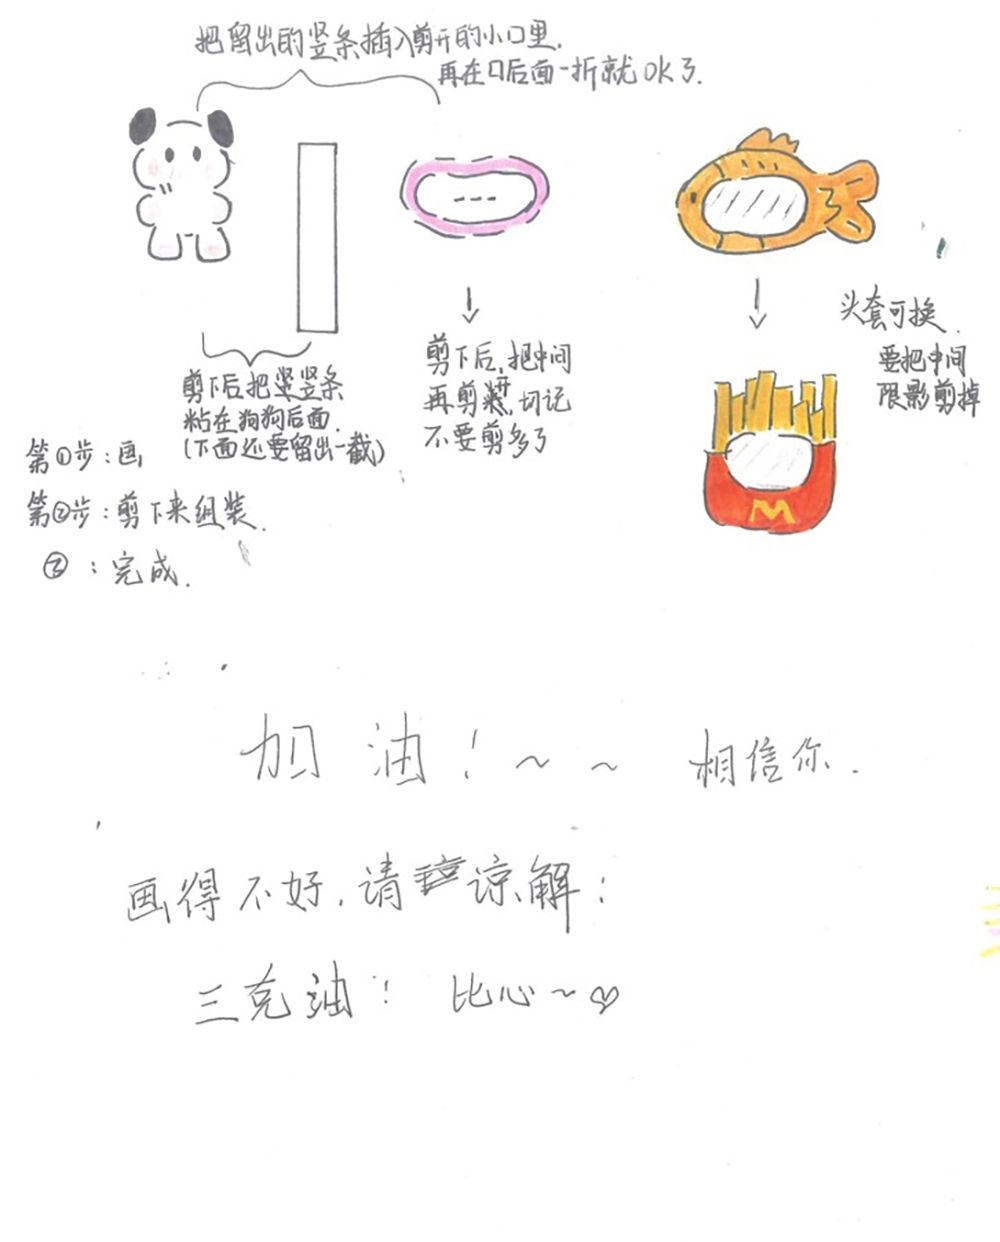 把留出的竖条插入剪开的小口里.
再在口后面一折就OK了.
剪下后把竖条
粘在狗狗后面.
(下面还要留出一截)
剪下后,把中间
再剪开,切记
不要剪多了
头套可换.
要把中间
限影剪掉
M
第①步:画
第②步:剪下来组装.
③:完成.
加油!~~ 相信你.
画得不好,请谅解:
三克油! 比心~♡